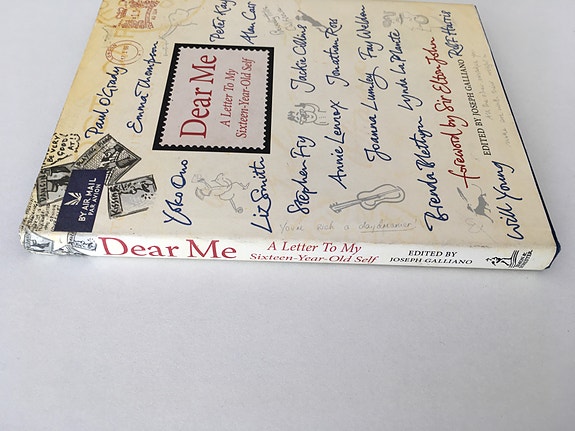 Paul O'Grady
Emma Thompson
Peter Kay
Alan Carr
Dear Me
A Letter To My
Sixteen-Year-Old Self
Jackie Collins
Jonathan Ross
Fay Weldon
Yoko Ono
Liz Smith
Stephen Fry
Annie Lennox
Joanna Lumley
Lynda La Plante
Brenda Blethyn
foreword by Sir Elton John
Rolf Harris
EDITED BY JOSEPH GALLIANO
Will Young
BY AIR MAIL
PAR AVION
You're such a daydreamer!
Dear Me
A Letter To My
Sixteen-Year-Old Self
EDITED BY
JOSEPH GALLIANO